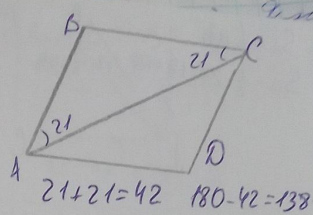 B
21
C
21
A
D
21+21=42 180-42=138